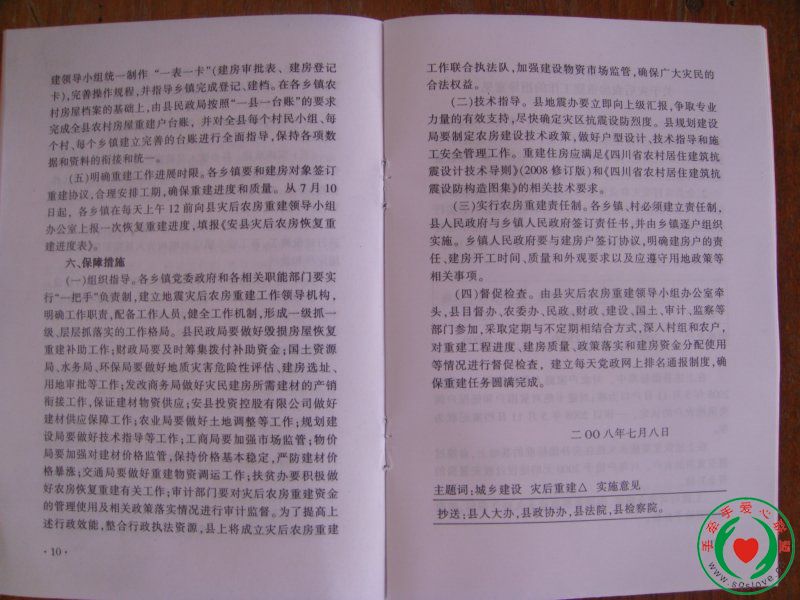 建领导小组统一制作 “一表一卡”(建房审批表、建房登记
卡),完善操作规程,并指导乡镇完成登记、建档。在各乡镇农
村房屋档案的基础上,由县民政局按照“一县一台账”的要求
完成全县农村房屋重建户台账, 并对全县每个村民小组、每
个村、每个乡镇建立完善的台账进行全面指导,保持各项数
据和资料的衔接和统一。
(五)明确重建工作进展时限。各乡镇要和建房对象签订
重建协议,合理安排工期,确保重建进度和质量。从 7 月 10
日起, 各乡镇在每天上午 12 前向县灾后农房重建领导小组
办公室上报一次恢复重建进度,填报《安县灾后农房恢复重
建进度表》。
六、保障措施
(一)组织指导。各乡镇党委政府和各相关职能部门要实
行“一把手”负责制,建立地震灾后农房重建工作领导机构,
明确工作职责,配备工作人员,健全工作机制,形成一级抓一
级、层层抓落实的工作格局。县民政局要做好毁损房屋恢复
重建补助工作;财政局要及时筹集拨付补助资金;国土资源
局、水务局、环保局要做好地质灾害危险性评估、建房选址、
用地审批等工作;发改商务局做好灾民建房所需建材的产销
衔接工作,保证建材物资供应;安县投资控股有限公司做好
建材供应保障工作;农业局要做好土地调整等工作;规划建
设局要做好技术指导等工作;工商局要加强市场监管;物价
局要加强对建材价格监管,保持价格基本稳定,严防建材价
格暴涨;交通局要做好重建物资调运工作;扶贫办要积极做
好农房恢复重建有关工作;审计部门要对灾后农房重建资金
的管理使用及相关政策落实情况进行审计监督。为了提高上
述行政效能,整合行政执法资源,县上将成立灾后农房重建
·10·
工作联合执法队,加强建设物资市场监管,确保广大灾民的
合法权益。
(二)技术指导。县地震办要立即向上级汇报,争取专业
力量的有效支持,尽快确定灾区抗震设防烈度。县规划建设
局要制定农房建设技术政策,做好户型设计、技术指导和施
工安全管理工作。重建住房应满足《四川省农村居住建筑抗
震设计技术导则》(2008 修订版)和《四川省农村居住建筑抗
震设防构造图集》的相关技术要求。
(三)实行农房重建责任制。各乡镇、村必须建立责任制,
县人民政府与乡镇人民政府签订责任书,并由乡镇逐户组织
实施。乡镇人民政府要与建房户签订协议,明确建房户的责
任、建房开工时间、质量和外观要求以及应遵守用地政策等
相关事项。
(四)督促检查。由县灾后农房重建领导小组办公室牵
头,县目督办、农委办、民政、财政、建设、国土、审计、监察等
部门参加,采取定期与不定期相结合方式,深入村组和农户,
对重建工程进度、建房质量、政策落实和建房资金分配使用
等情况进行督促检查, 建立每天党政网上排名通报制度,确
保重建任务圆满完成。
二〇〇八年七月八日
主题词:城乡建设 灾后重建△ 实施意见
抄送:县人大办,县政协办,县法院,县检察院。
手牵手爱心联盟